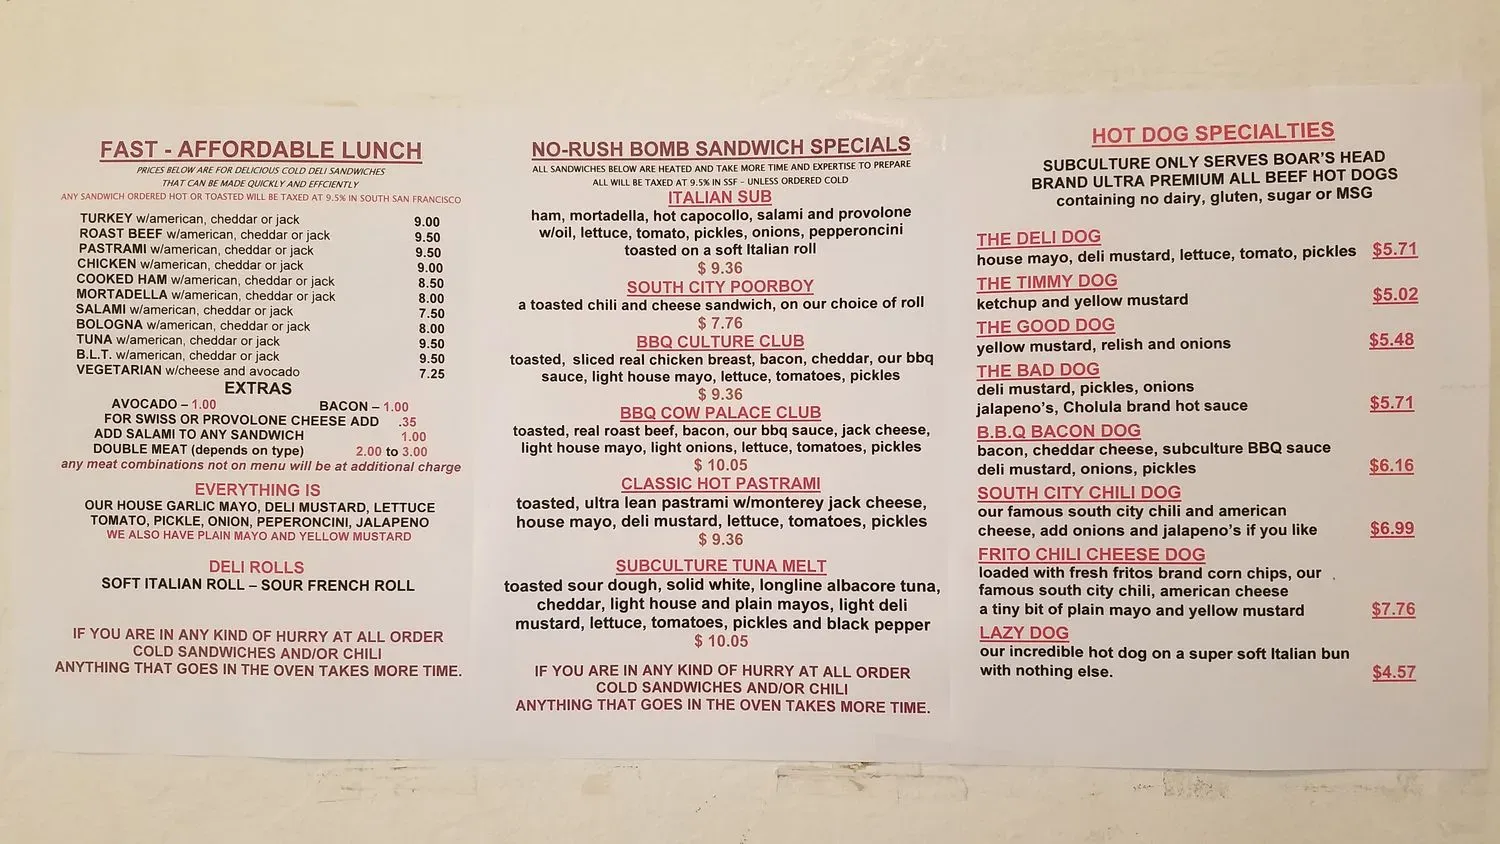 FAST - AFFORDABLE LUNCH
PRICES BELOW ARE FOR DELICIOUS COLD DELI SANDWICHES
THAT CAN BE MADE QUICKLY AND EFFCIENTLY
ANY SANDWICH ORDERED HOT OR TOASTED WILL BE TAXED AT 9.5% IN SOUTH SAN FRANCISCO
TURKEY w/american, cheddar or jack 9.00
ROAST BEEF w/american, cheddar or jack 9.50
PASTRAMI w/american, cheddar or jack 9.50
CHICKEN w/american, cheddar or jack 9.00
COOKED HAM w/american, cheddar or jack 8.50
MORTADELLA w/american, cheddar or jack 8.00
SALAMI w/american, cheddar or jack 7.50
BOLOGNA w/american, cheddar or jack 8.00
TUNA w/american, cheddar or jack 9.50
B.L.T. w/american, cheddar or jack 9.50
VEGETARIAN w/cheese and avocado 7.25
EXTRAS
AVOCADO – 1.00 BACON – 1.00
FOR SWISS OR PROVOLONE CHEESE ADD .35
ADD SALAMI TO ANY SANDWICH 1.00
DOUBLE MEAT (depends on type) 2.00 to 3.00
any meat combinations not on menu will be at additional charge
EVERYTHING IS
OUR HOUSE GARLIC MAYO, DELI MUSTARD, LETTUCE
TOMATO, PICKLE, ONION, PEPERONCINI, JALAPENO
WE ALSO HAVE PLAIN MAYO AND YELLOW MUSTARD
DELI ROLLS
SOFT ITALIAN ROLL – SOUR FRENCH ROLL
IF YOU ARE IN ANY KIND OF HURRY AT ALL ORDER
COLD SANDWICHES AND/OR CHILI
ANYTHING THAT GOES IN THE OVEN TAKES MORE TIME.
NO-RUSH BOMB SANDWICH SPECIALS
ALL SANDWICHES BELOW ARE HEATED AND TAKE MORE TIME AND EXPERTISE TO PREPARE
ALL WILL BE TAXED AT 9.5% IN SSF - UNLESS ORDERED COLD
ITALIAN SUB
ham, mortadella, hot capocollo, salami and provolone
w/oil, lettuce, tomato, pickles, onions, pepperoncini
toasted on a soft Italian roll
$ 9.36
SOUTH CITY POORBOY
a toasted chili and cheese sandwich, on our choice of roll
$ 7.76
BBQ CULTURE CLUB
toasted, sliced real chicken breast, bacon, cheddar, our bbq
sauce, light house mayo, lettuce, tomatoes, pickles
$ 9.36
BBQ COW PALACE CLUB
toasted, real roast beef, bacon, our bbq sauce, jack cheese,
light house mayo, light onions, lettuce, tomatoes, pickles
$ 10.05
CLASSIC HOT PASTRAMI
toasted, ultra lean pastrami w/monterey jack cheese,
house mayo, deli mustard, lettuce, tomatoes, pickles
$ 9.36
SUBCULTURE TUNA MELT
toasted sour dough, solid white, longline albacore tuna,
cheddar, light house and plain mayos, light deli
mustard, lettuce, tomatoes, pickles and black pepper
$ 10.05
IF YOU ARE IN ANY KIND OF HURRY AT ALL ORDER
COLD SANDWICHES AND/OR CHILI
ANYTHING THAT GOES IN THE OVEN TAKES MORE TIME.
HOT DOG SPECIALTIES
SUBCULTURE ONLY SERVES BOAR'S HEAD
BRAND ULTRA PREMIUM ALL BEEF HOT DOGS
containing no dairy, gluten, sugar or MSG
THE DELI DOG
house mayo, deli mustard, lettuce, tomato, pickles $5.71
THE TIMMY DOG
ketchup and yellow mustard $5.02
THE GOOD DOG
yellow mustard, relish and onions $5.48
THE BAD DOG
deli mustard, pickles, onions
jalapeno's, Cholula brand hot sauce $5.71
B.B.Q BACON DOG
bacon, cheddar cheese, subculture BBQ sauce
deli mustard, onions, pickles $6.16
SOUTH CITY CHILI DOG
our famous south city chili and american
cheese, add onions and jalapeno's if you like $6.99
FRITO CHILI CHEESE DOG
loaded with fresh fritos brand corn chips, our
famous south city chili, american cheese
a tiny bit of plain mayo and yellow mustard $7.76
LAZY DOG
our incredible hot dog on a super soft Italian bun
with nothing else. $4.57